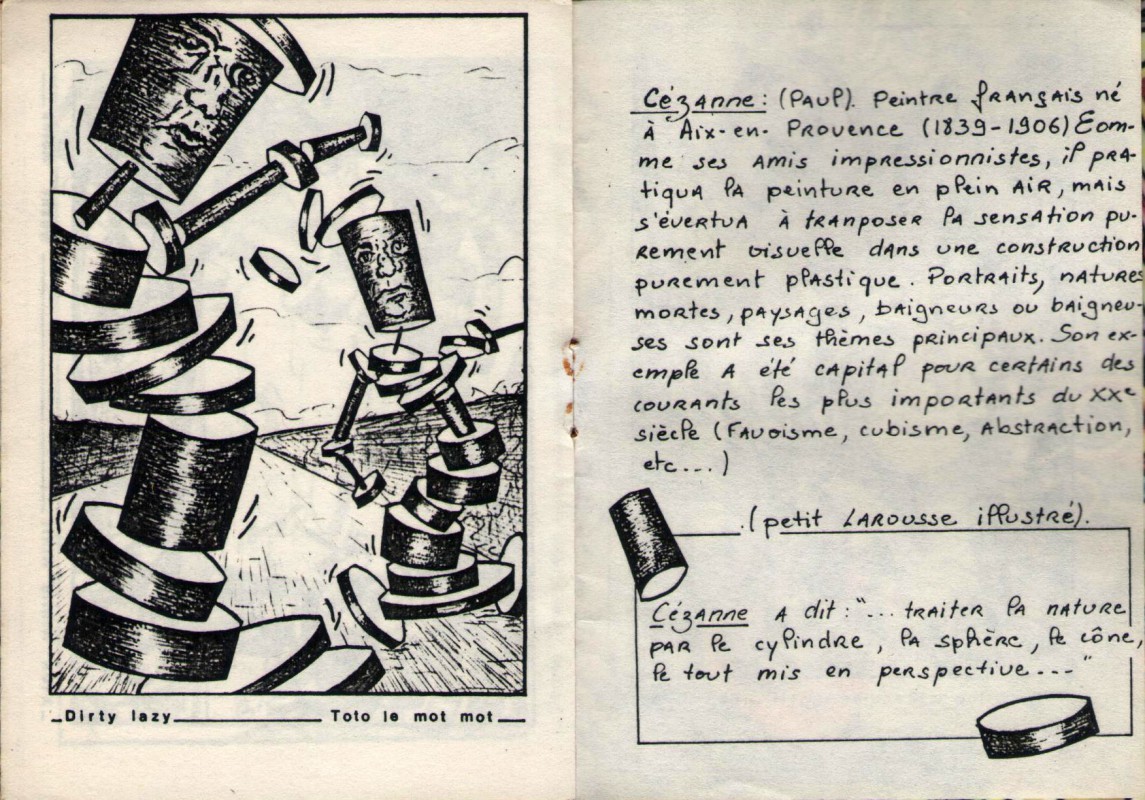 Dirty lazy Toto le mot mot
Cézanne : (PAul). Peintre français né
à Aix-en-Provence (1839-1906) Com-
me ses amis impressionnistes, il pra-
tiqua la peinture en plein air, mais
s'évertua à tranposer la sensation pu-
rement visuelle dans une construction
purement plastique. Portraits, natures
mortes, paysages, baigneurs ou baigneu-
ses sont ses thèmes principaux. Son ex-
emple a été capital pour certains des
courants les plus importants du XXe
siècle (Fauvisme, cubisme, Abstraction,
etc...)
.(petit LAROUSSE illustré).
Cézanne a dit : "... traiter la nature
par le cylindre, la sphère, le cône,
le tout mis en perspective...."